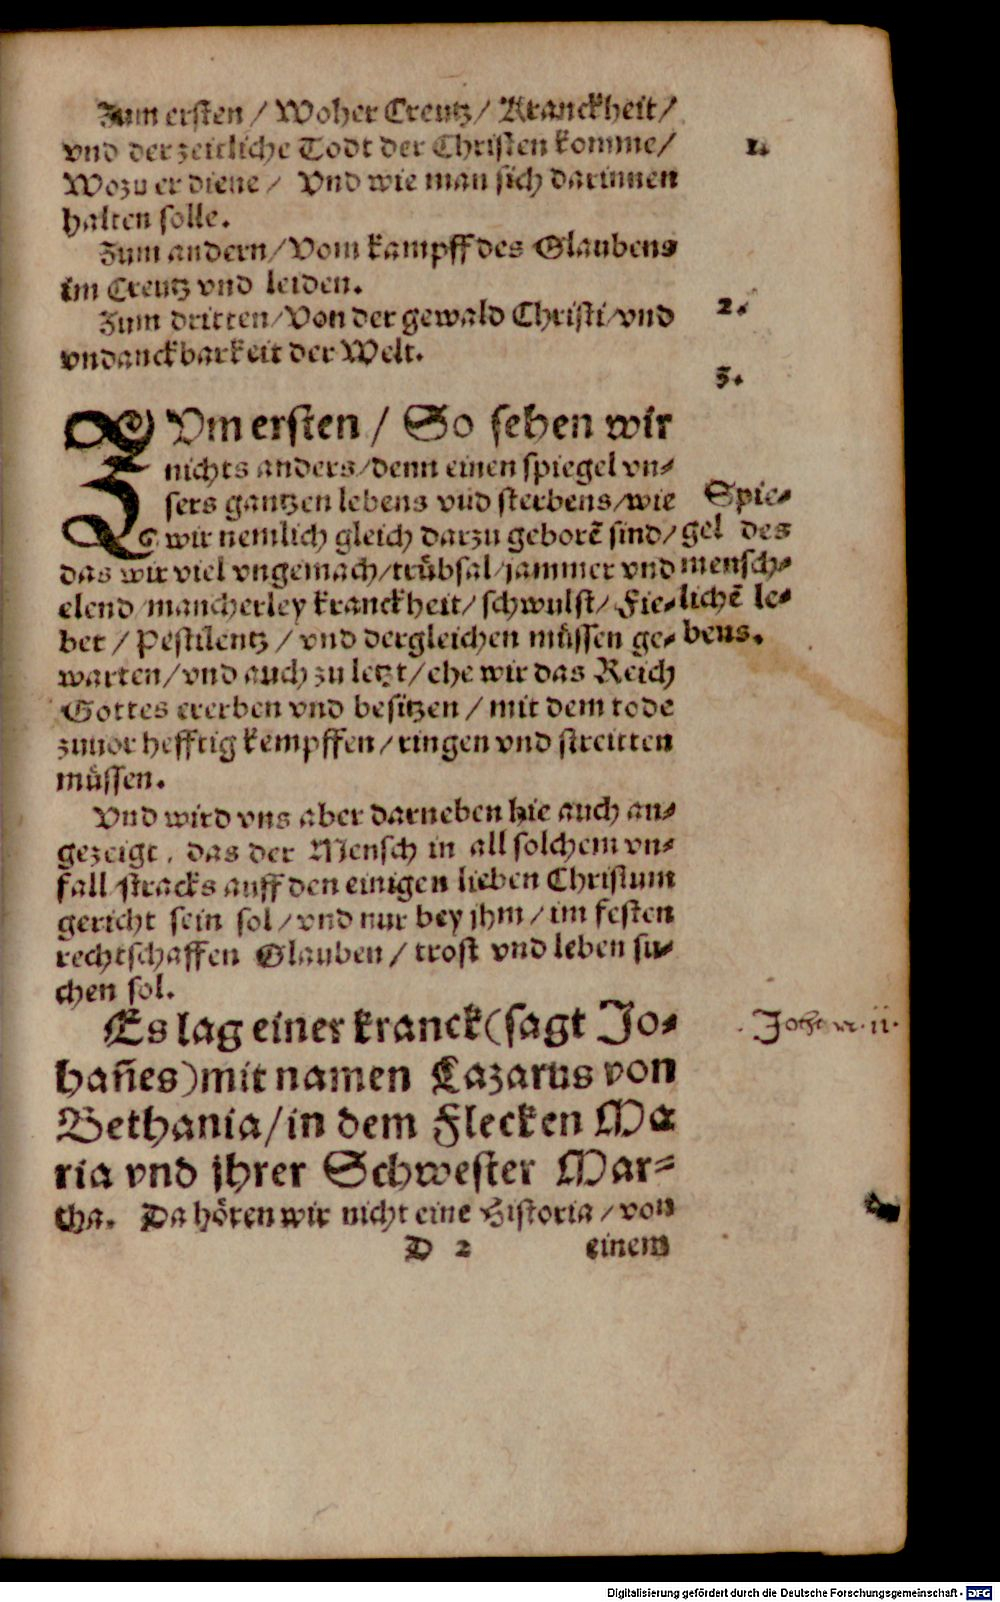 Zum ersten / Woher Creutz / Kranckheit /
vnd der zeitliche Todt der Christen komme /
1.
Wozu er diene / Vnd wie man sich darinnen
halten solle.
Zum andern / Vom kampff des Glaubens
im Creutz vnd leiden.
2.
Zum dritten / Von der gewald Christi / vnd
vndanckbarkeit der Welt.
3.
ZVm ersten / So sehen wir
nichts anders / denn einen spiegel vn⸗
sers gantzen lebens vnd sterbens / wie
wir nemlich gleich darzu geborē sind /
das wir viel vngemach / trübsal / jammer vnd
elend / mancherley kranckheit / schwulst / Fie⸗
ber / Pestilentz / vnd dergleichen müssen ge⸗
warten / vnd auch zu letzt / ehe wir das Reich
Gottes ererben vnd besitzen / mit dem tode
zuuor hefftig kempffen / ringen vnd streitten
müssen.
Spie⸗
gel des
mensch⸗
lichē le⸗
bens.
Vnd wird vns aber darneben hie auch an⸗
gezeigt, das der Mensch in all solchem vn⸗
fall stracks auff den einigen lieben Christum
gericht sein sol / vnd nur bey jhm / im festen
rechtschaffen Glauben / trost vnd leben su⸗
chen sol.
Es lag einer kranck (sagt Jo⸗
hañes) mit namen Lazarus von
Bethania / in dem Flecken Ma
ria vnd jhrer Schwester Mar⸗
tha. Da hören wir nicht eine Historia / von
D 2
einem
Digitalisierung gefördert durch die Deutsche Forschungsgemeinschaft - DFG